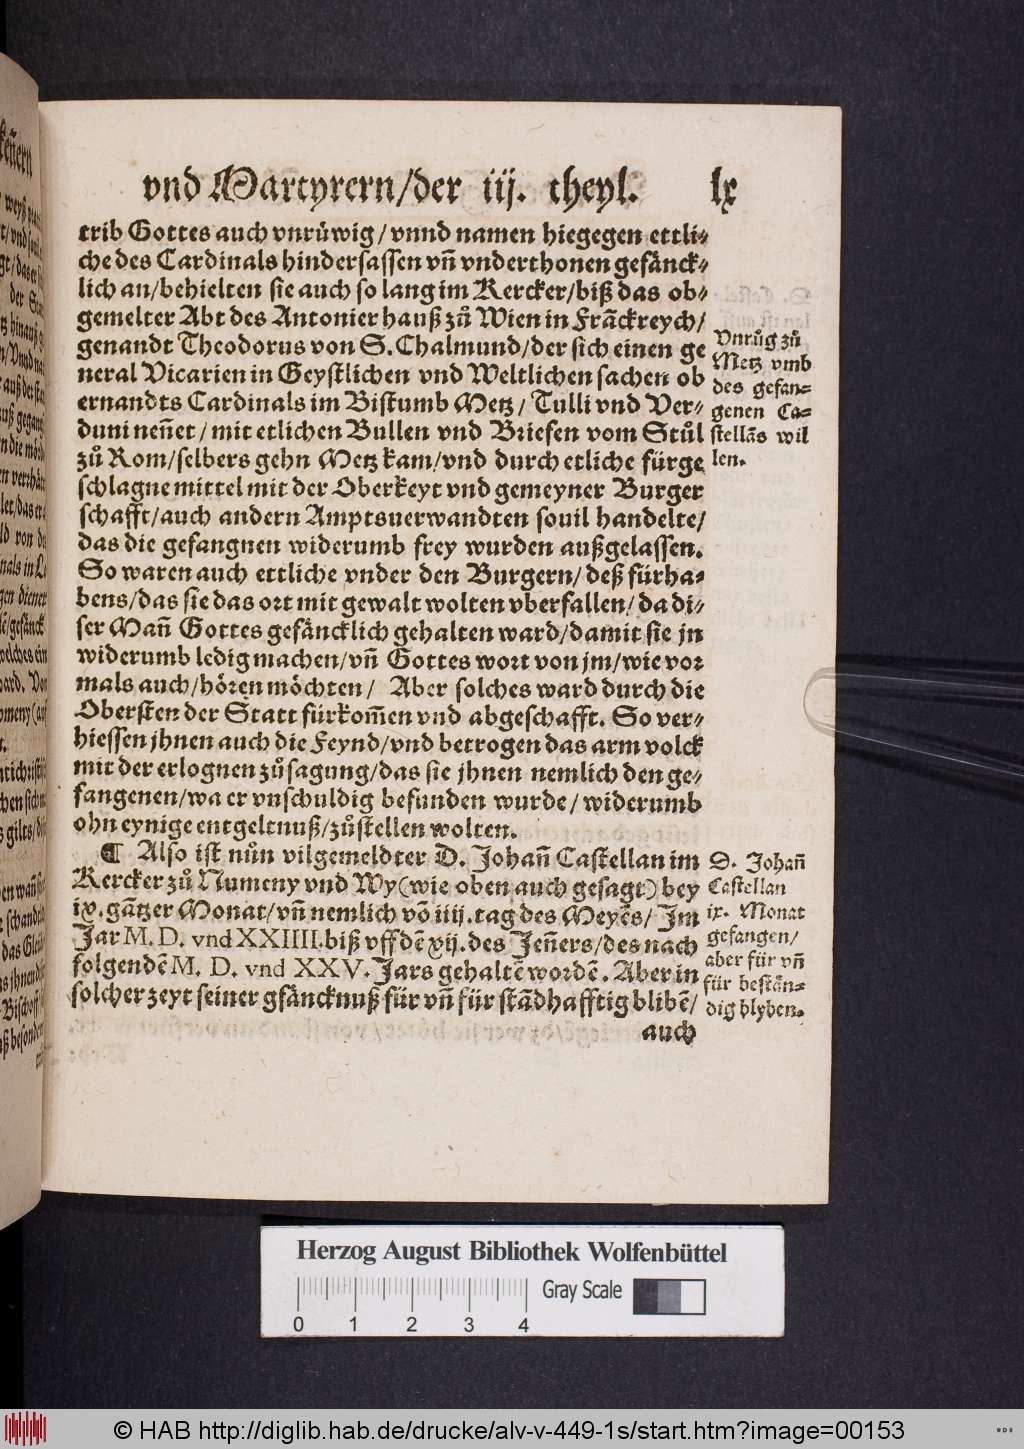 vnd Martyrern/der iij. theyl. lx
trib Gottes auch vnrůwig/vnnd namen hiegegen ettli-
che des Cardinals hindersassen vñ vnderthonen gefånck-
lich an/behielten sie auch so lang im Kercker/biß das ob-
gemelter Abt des Antonier hauß zů Wien in Frãckreych/
genandt Theodorus von S. Chalmund/der sich einen ge
neral Vicarien in Geystlichen vnd Weltlichen sachen ob
ernandts Cardinals im Bistumb Metz/Tulli vnd Ver-
duni neñet/mit etlichen Bullen vnd Briefen vom Stůl
zů Rom/selbers gehn Metz kam/vnd durch etliche fürge
schlagne mittel mit der Oberkeyt vnd gemeyner Burger
schafft/auch andern Amptsuerwandten souil handelte/
das die gefangnen widerumb frey wurden außgelassen.
So waren auch ettliche vnder den Burgern/deß fürha-
bens/das sie das ort mit gewalt wolten vberfallen/da di-
ser Mañ Gottes gefåncklich gehalten ward/damit sie jn
widerumb ledig machen/vñ Gottes wort von jm/wie vor
mals auch/hören möchten/ Aber solches ward durch die
Obersten der Statt fürkom̃en vnd abgeschafft. So ver-
hiessen jhnen auch die Feynd/vnd betrogen das arm volck
mit der erlognen zůsagung/das sie jhnen nemlich den ge-
fangenen/wa er vnschuldig befunden wurde/widerumb
ohn eynige entgeltnuß/zůstellen wolten.
¶ Also ist nůn vilgemeldter D. Johañ Castellan im
Kercker zů Numeny vnd Wy(wie oben auch gesagt) bey
ix. gãtzer Monat/vñ nemlich võ iiij. tag des Meyẽs/Im
Jar M. D. vnd XXIIII. biß vff dẽ xij. des Jeñers/des nach
folgendẽ M. D. vnd XXV. Jars gehaltẽ wordẽ. Aber in
solcher zeyt seiner gfäncknuß für vñ für stãdhafftig blibẽ/
auch
Vnrůg zů
Metz vmb
des gefan-
genen Ca-
stellãs wil
len.
D. Johañ
Castellan
ix. Monat
gefangen/
aber für vñ
für bestån-
dig blyben.
Herzog August Bibliothek Wolfenbüttel
Gray Scale
0 1 2 3 4
© HAB http://diglib.hab.de/drucke/alv-v-449-1s/start.htm?image=00153